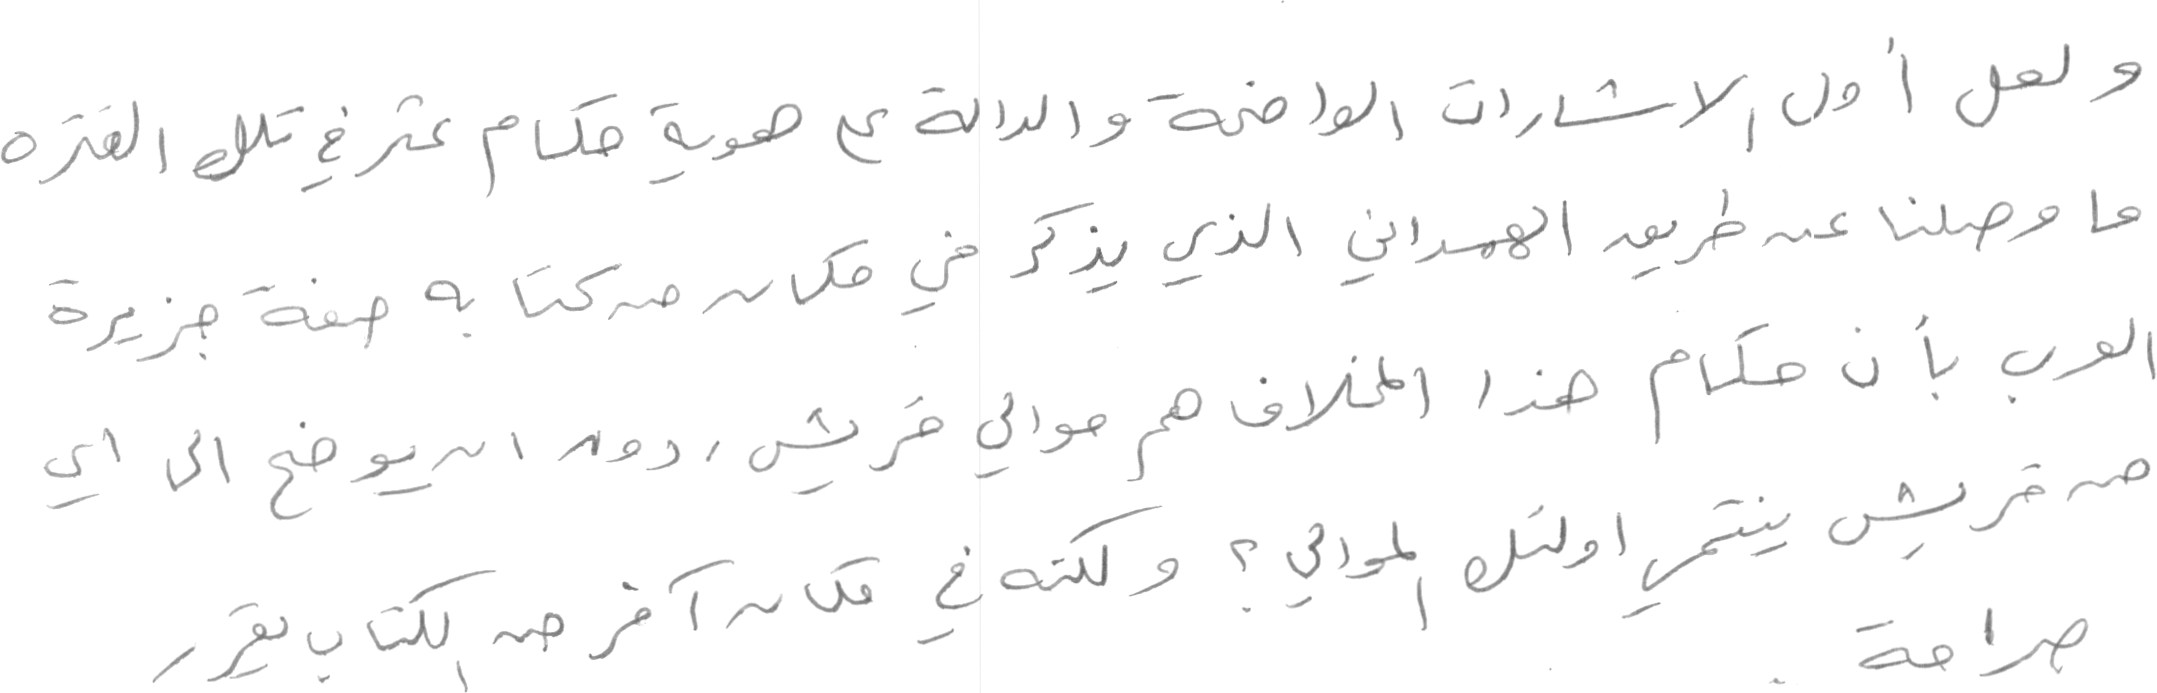 ولعل أول الاشارات الواضحة والدالة على هوية حكام عثر في تلك الفتره
ما وصلنا عن طريق الهمداني الذي يذكر في مكان من كتابه صفة جزيرة
العرب بأن حكام هذا المخلاف هم موالي قريش، دون ان يوضح الى اي
من قريش ينتمي اولئك الموالي؟ ولكنه في مكان آخر من الكتاب يقرر
صراحة